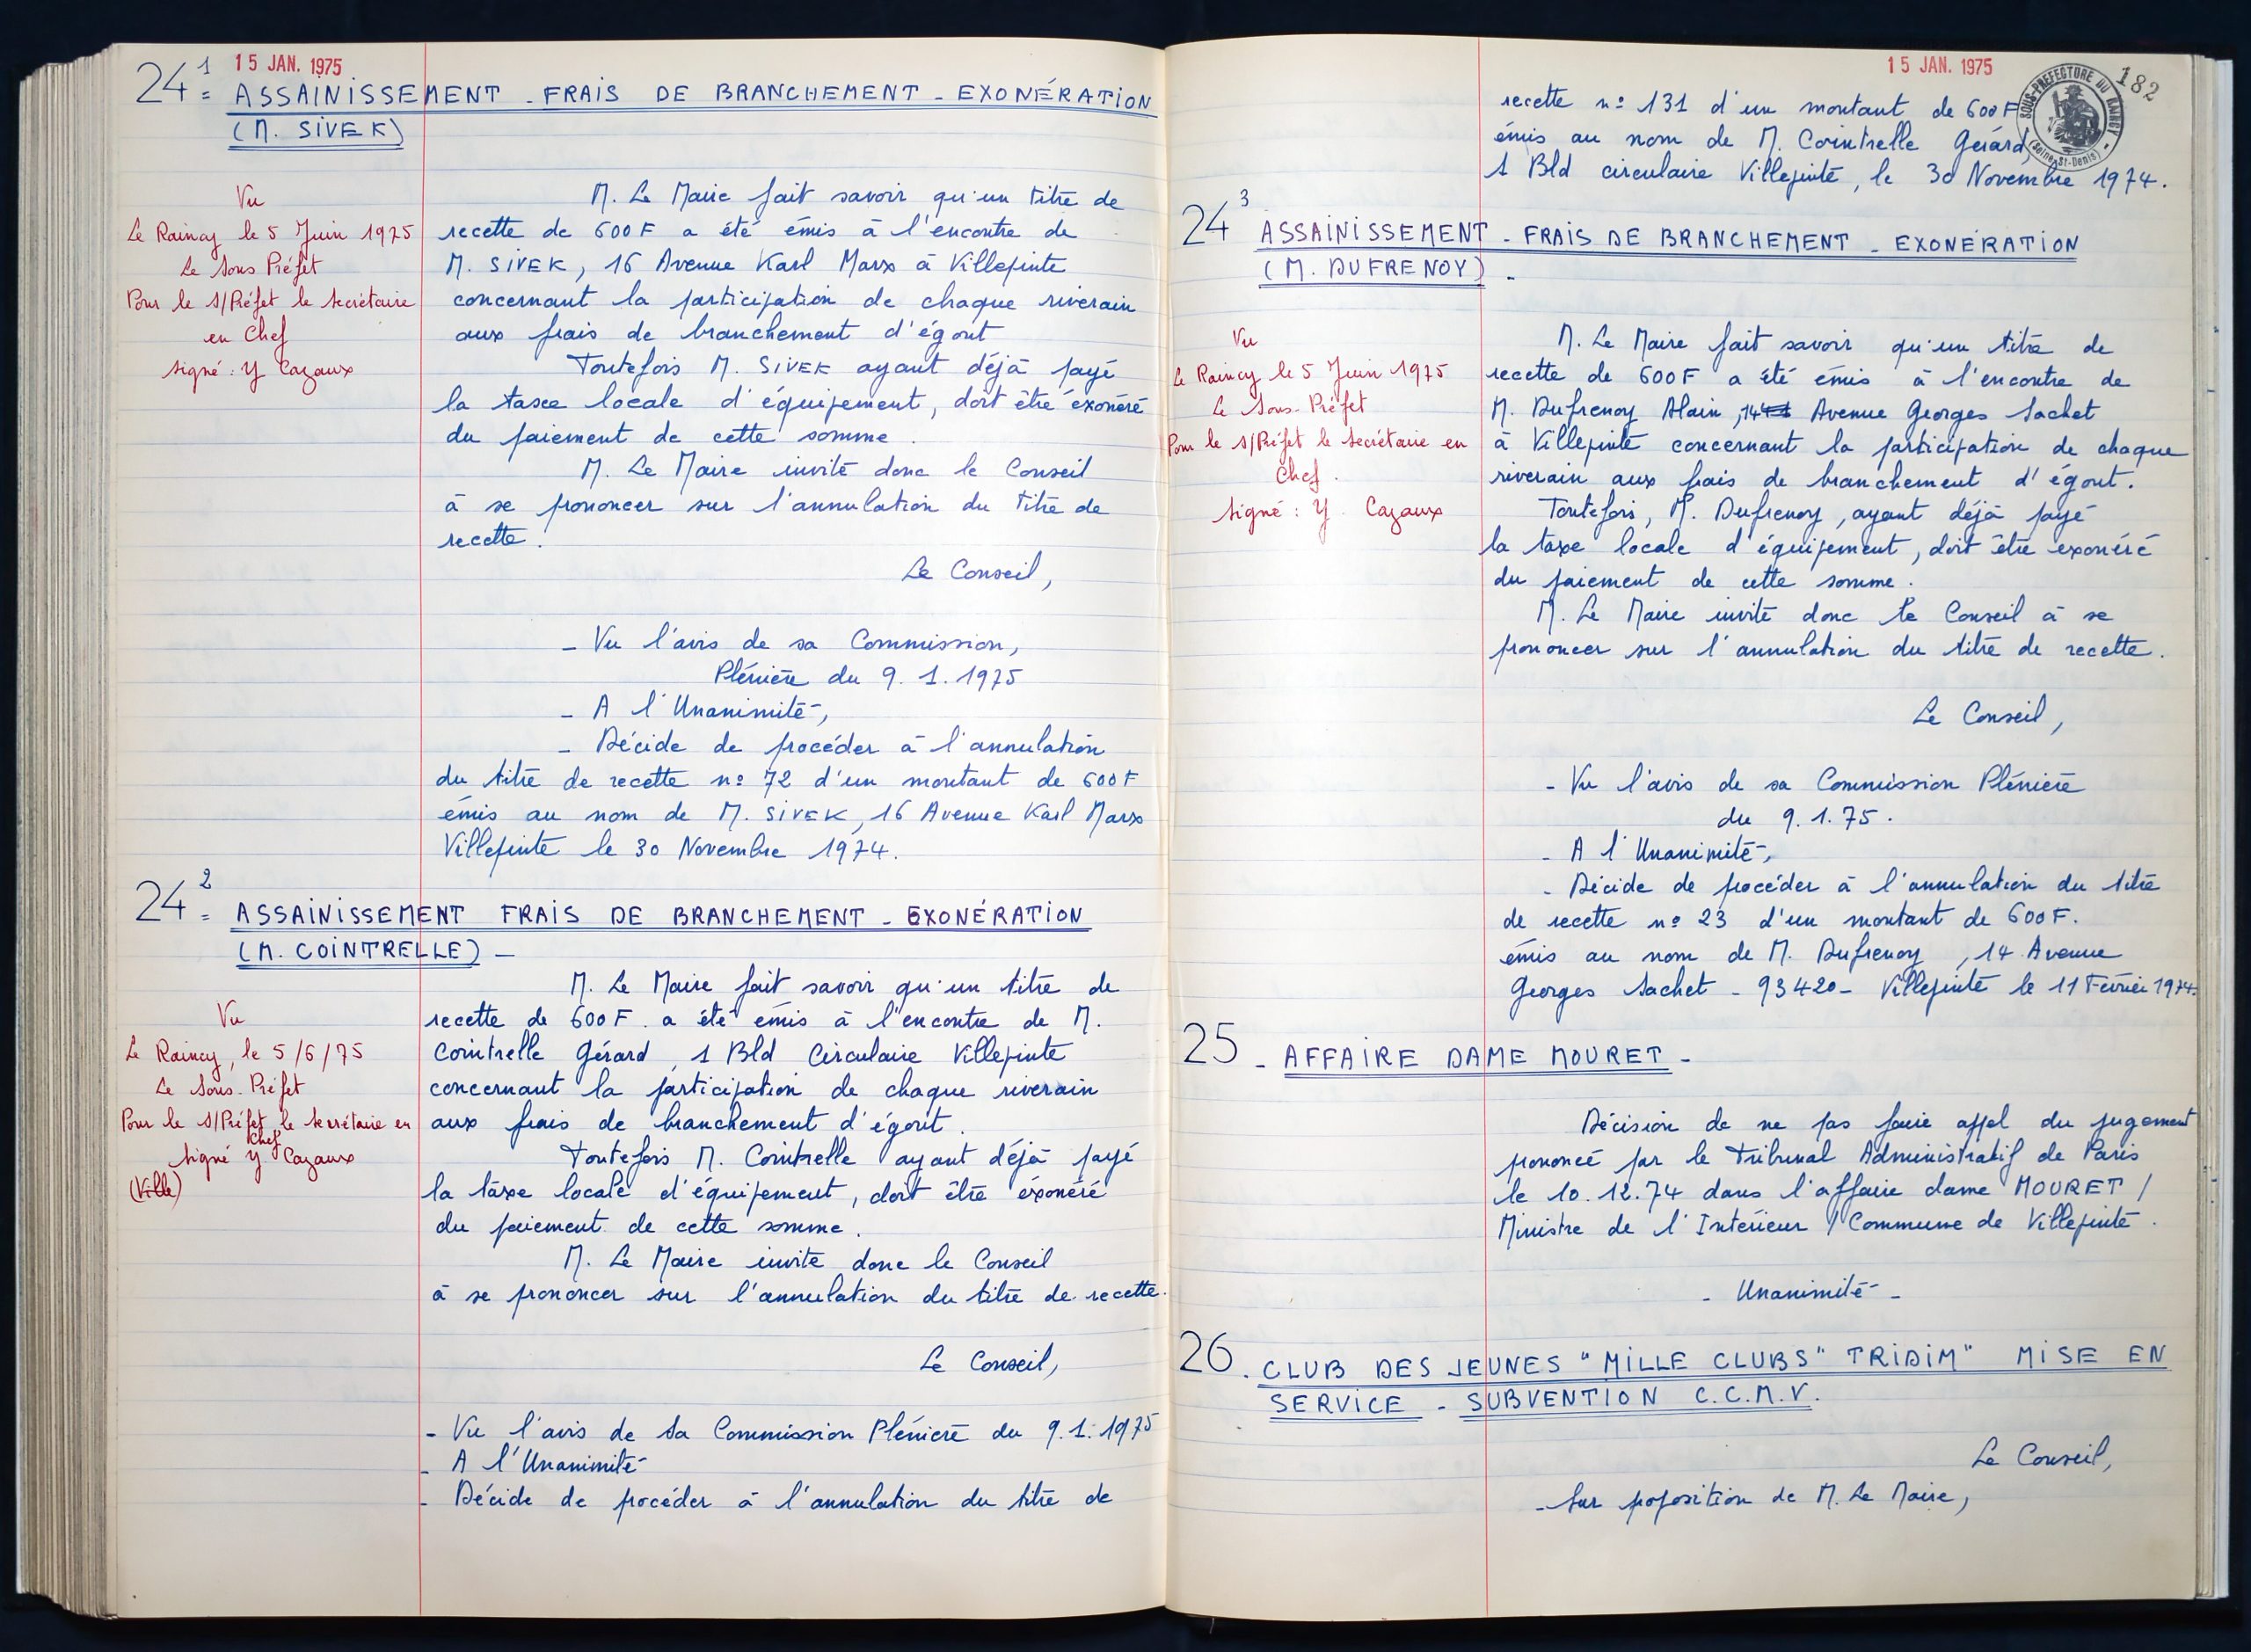 15 JAN. 1975
24¹ = ASSAINISSEMENT - FRAIS DE BRANCHEMENT - EXONÉRATION
(M. SIVEK)
Vu
Le Raincy le 5 Juin 1975
Le Sous Préfet
Pour le S/Préfet le secrétaire
en Chef
signé : Y Cazaux
M. Le Maire fait savoir qu'un titre de
recette de 600 F a été émis à l'encontre de
M. SIVEK, 16 Avenue Karl Marx à Villepinte
concernant la participation de chaque riverain
aux frais de branchement d'égout
Toutefois M. SIVEK ayant déjà payé
la taxe locale d'équipement, doit être éxonéré
du paiement de cette somme.
M. Le Maire invite donc le Conseil
à se prononcer sur l'annulation du titre de
recette.
Le Conseil,
- Vu l'avis de sa Commission,
Plénière du 9.1.1975
- A l'Unanimité,
- Décide de procéder à l'annulation
du titre de recette n° 72 d'un montant de 600 F
émis au nom de M. SIVEK, 16 Avenue Karl Marx
Villepinte le 30 Novembre 1974.
24² = ASSAINISSEMENT FRAIS DE BRANCHEMENT - EXONÉRATION
(M. COINTRELLE) -
Vu
Le Raincy, le 5/6/75
Le Sous-Préfet
Pour le S/Préfet le secrétaire en
Chef
signé Y Cazaux
(Ville)
M. Le Maire fait savoir qu'un titre de
recette de 600 F. a été émis à l'encontre de M.
Cointrelle Gérard, 1 Bld Circulaire Villepinte
concernant la participation de chaque riverain
aux frais de branchement d'égout.
Toutefois M. Cointrelle ayant déjà payé
la taxe locale d'équipement, doit être éxonéré
du paiement de cette somme.
M. Le Maire invite donc le Conseil
à se prononcer sur l'annulation du titre de recette.
Le Conseil,
- Vu l'avis de sa Commission Plénière du 9.1.1975
- A l'Unanimité
- Décide de procéder à l'annulation du titre de
15 JAN. 1975
182
SOUS-PREFECTURE DU RAINCY
(Seine-St-Denis)
recette n° 131 d'un montant de 600 F
émis au nom de M. Cointrelle Gérard,
1 Bld circulaire Villepinte, le 30 Novembre 1974.
24³ ASSAINISSEMENT - FRAIS DE BRANCHEMENT - EXONERATION
(M. DUFRENOY) -
Vu
Le Raincy le 5 Juin 1975
Le Sous-Préfet
Pour le S/Préfet le secrétaire en
Chef.
signé : Y. Cazaux
M. Le Maire fait savoir qu'un titre de
recette de 600 F a été émis à l'encontre de
M. Dufrenoy Alain, 14 Avenue Georges Sachet
à Villepinte concernant la participation de chaque
riverain aux frais de branchement d'égout.
Toutefois, M. Dufrenoy, ayant déjà payé
la taxe locale d'équipement, doit être exonéré
du paiement de cette somme.
M. Le Maire invite donc le Conseil à se
prononcer sur l'annulation du titre de recette.
Le Conseil,
- Vu l'avis de sa Commission Plénière
du 9.1.75.
- A l'Unanimité,
- Décide de procéder à l'annulation du titre
de recette n° 23 d'un montant de 600 F.
émis au nom de M. Dufrenoy, 14 Avenue
Georges Sachet - 93420 - Villepinte le 11 Février 1974.
25 - AFFAIRE DAME MOURET -
Décision de ne pas faire appel du jugement
prononcé par le Tribunal Administratif de Paris
le 10.12.74 dans l'affaire dame MOURET /
Ministre de l'Intérieur / Commune de Villepinte.
- Unanimité -
26. CLUB DES JEUNES "MILLE CLUBS" TRIDIM" MISE EN
SERVICE - SUBVENTION C.C.M.V.
Le Conseil,
- Sur proposition de M. Le Maire,